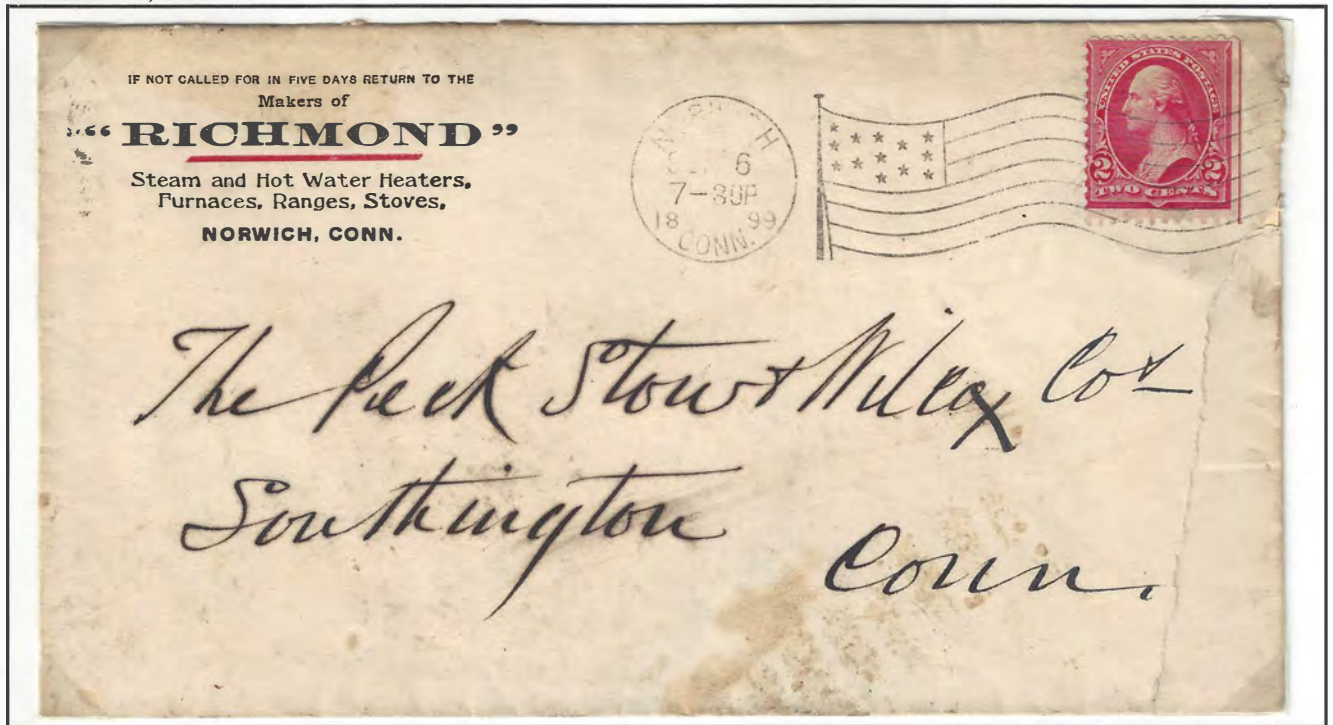 IF NOT CALLED FOR IN FIVE DAYS RETURN TO THE
Makers of
"RICHMOND"
Steam and Hot Water Heaters,
Furnaces, Ranges, Stoves,
NORWICH, CONN.
6
7-30P
18 99
CONN.
UNITED STATES POSTAGE
2 2
TWO CENTS
The Peck Stow & Wilcox Co
Southington
Conn.